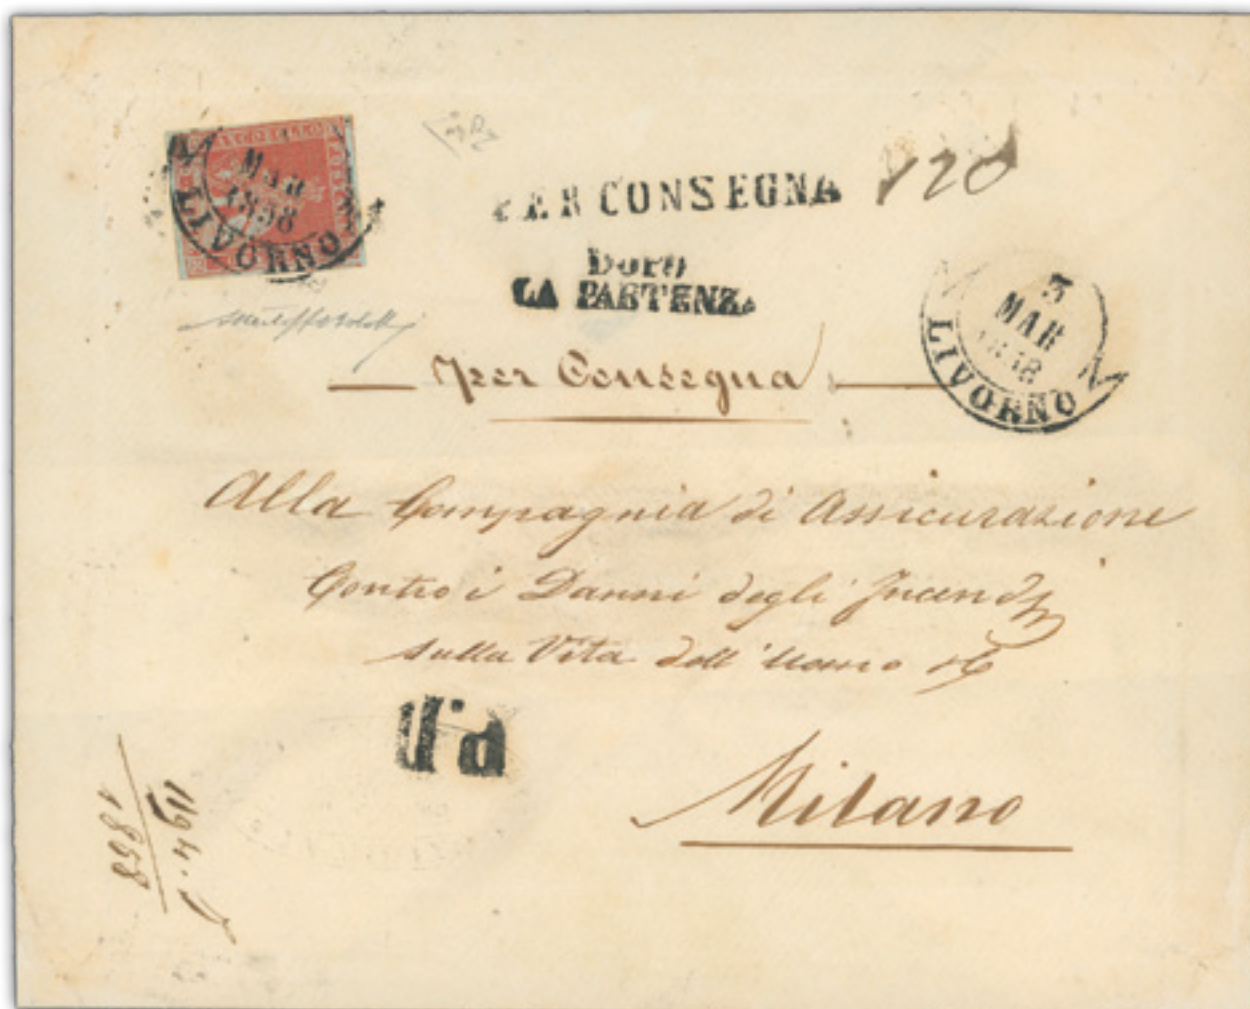 MAR
1858
LIVORNO
PER CONSEGNA 120
DOPO
LA PARTENZA
3
MAR
1858
LIVORNO
Per Consegna
Alla Compagnia di Assicurazione
Contro i Danni degli Incendj
sulla Vita dell'Uomo
Milano
P.D.
1858